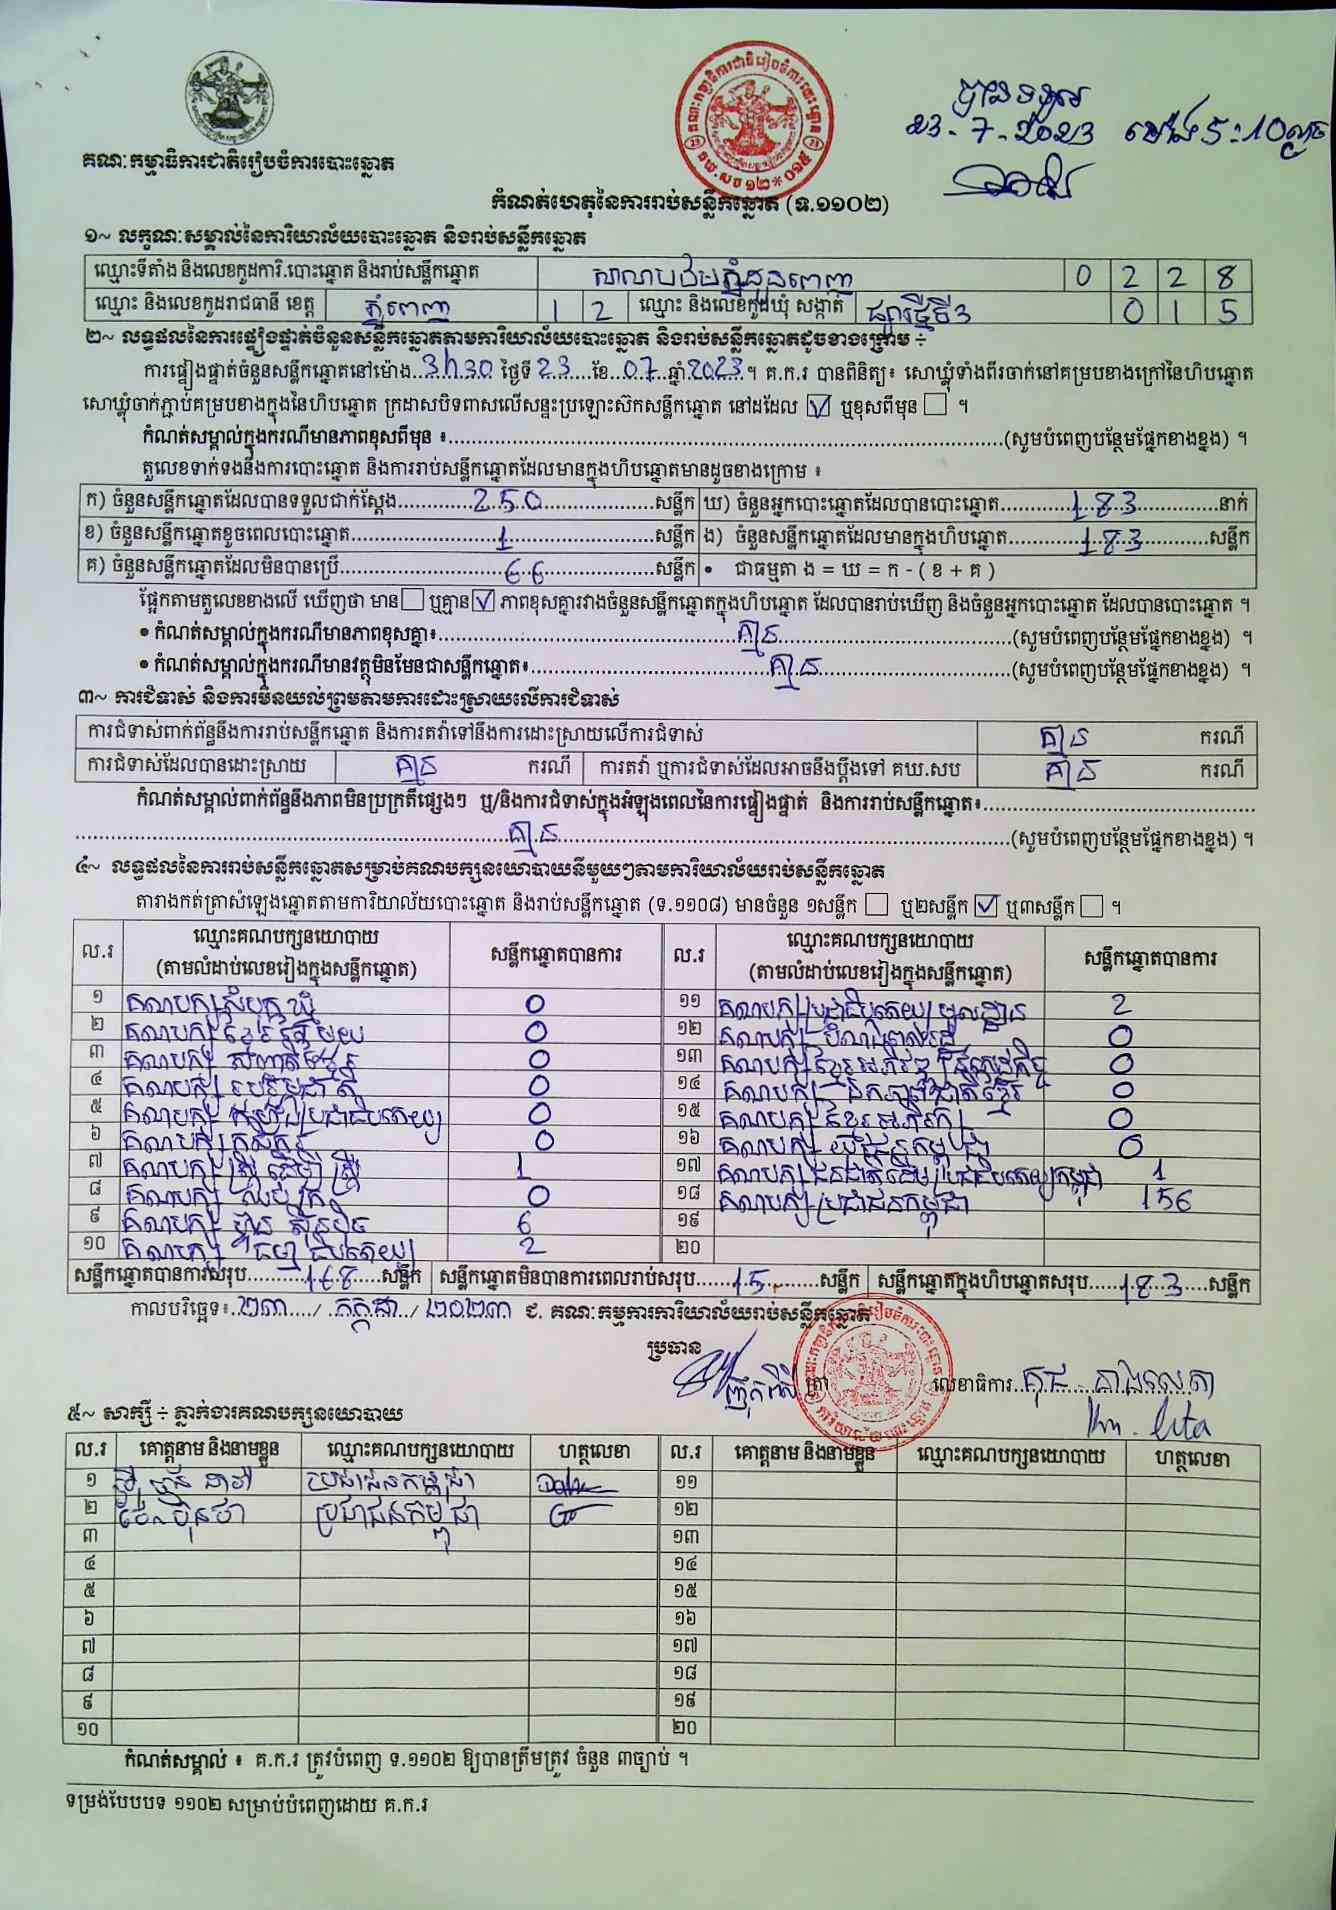 បានទទួល
23-7-2023 ម៉ោង 5:10ល្ងាច
គណៈកម្មាធិការជាតិរៀបចំការបោះឆ្នោត
កំណត់ហេតុនៃការរាប់សន្លឹកឆ្នោត (ទ.១១០២)
១~ លក្ខណៈសម្គាល់នៃការិយាល័យបោះឆ្នោត និងរាប់សន្លឹកឆ្នោត
ឈ្មោះទីតាំង និងលេខកូដការិ.បោះឆ្នោត និងរាប់សន្លឹកឆ្នោត 0 2 2 8
ឈ្មោះ និងលេខកូដរាជធានី ខេត្ត ភ្នំពេញ 1 2 ឈ្មោះ និងលេខកូដឃុំ សង្កាត់ ផ្សារថ្មីទី3 0 1 5
២~ លទ្ធផលនៃការផ្ទៀងផ្ទាត់ចំនួនសន្លឹកឆ្នោតតាមការិយាល័យបោះឆ្នោត និងរាប់សន្លឹកឆ្នោតដូចខាងក្រោម ÷
ការផ្ទៀងផ្ទាត់ចំនួនសន្លឹកឆ្នោតនៅម៉ោង 3h30 ថ្ងៃទី 23 ខែ 07 ឆ្នាំ 2023 ។ គ.ក.រ បានពិនិត្យ៖ សោឃ្លុំទាំងពីរចាក់នៅគម្របខាងក្រៅនៃហិបឆ្នោត
សោឃ្លុំចាក់ភ្ជាប់គម្របខាងក្នុងនៃហិបឆ្នោត ក្រដាសបិទពាសលើសន្ទះប្រឡោះស៊កសន្លឹកឆ្នោត នៅដដែល ☑ ឬខុសពីមុន ☐ ។
កំណត់សម្គាល់ក្នុងករណីមានភាពខុសពីមុន ៖ (សូមបំពេញបន្ថែមផ្នែកខាងខ្នង) ។
តួលេខទាក់ទងនឹងការបោះឆ្នោត និងការរាប់សន្លឹកឆ្នោតដែលមានក្នុងហិបឆ្នោតមានដូចខាងក្រោម ៖
ក) ចំនួនសន្លឹកឆ្នោតដែលបានទទួលជាក់ស្តែង 250 សន្លឹក ឃ) ចំនួនអ្នកបោះឆ្នោតដែលបានបោះឆ្នោត 183 នាក់
ខ) ចំនួនសន្លឹកឆ្នោតខូចពេលបោះឆ្នោត 1 សន្លឹក ង) ចំនួនសន្លឹកឆ្នោតដែលមានក្នុងហិបឆ្នោត 183 សន្លឹក
គ) ចំនួនសន្លឹកឆ្នោតដែលមិនបានប្រើ 66 សន្លឹក • ជាធម្មតា ង = ឃ = ក - ( ខ + គ )
ផ្អែកតាមតួលេខខាងលើ ឃើញថា មាន ☐ ឬគ្មាន ☑ ភាពខុសគ្នារវាងចំនួនសន្លឹកឆ្នោតក្នុងហិបឆ្នោត ដែលបានរាប់ឃើញ និងចំនួនអ្នកបោះឆ្នោត ដែលបានបោះឆ្នោត ។
• កំណត់សម្គាល់ក្នុងករណីមានភាពខុសគ្នា៖ គ្មាន (សូមបំពេញបន្ថែមផ្នែកខាងខ្នង) ។
• កំណត់សម្គាល់ក្នុងករណីមានវត្ថុមិនមែនជាសន្លឹកឆ្នោត៖ គ្មាន (សូមបំពេញបន្ថែមផ្នែកខាងខ្នង) ។
៣~ ការជំទាស់ និងការមិនយល់ព្រមតាមការដោះស្រាយលើការជំទាស់
ការជំទាស់ពាក់ព័ន្ធនឹងការរាប់សន្លឹកឆ្នោត និងការតវ៉ាទៅនឹងការដោះស្រាយលើការជំទាស់ គ្មាន ករណី
ការជំទាស់ដែលបានដោះស្រាយ គ្មាន ករណី ការតវ៉ា ឬការជំទាស់ដែលអាចនឹងប្តឹងទៅ គឃ.សប គ្មាន ករណី
កំណត់សម្គាល់ពាក់ព័ន្ធនឹងភាពមិនប្រក្រតីផ្សេងៗ ឬ/និងការជំទាស់ក្នុងអំឡុងពេលនៃការផ្ទៀងផ្ទាត់ និងការរាប់សន្លឹកឆ្នោត៖
គ្មាន (សូមបំពេញបន្ថែមផ្នែកខាងខ្នង) ។
៤~ លទ្ធផលនៃការរាប់សន្លឹកឆ្នោតសម្រាប់គណបក្សនយោបាយនីមួយៗតាមការិយាល័យរាប់សន្លឹកឆ្នោត
តារាងកត់ត្រាសំឡេងឆ្នោតតាមការិយាល័យបោះឆ្នោត និងរាប់សន្លឹកឆ្នោត (ទ.១១០៨) មានចំនួន ១សន្លឹក ☐ ឬ២សន្លឹក ☑ ឬ៣សន្លឹក ☐ ។
ល.រ ឈ្មោះគណបក្សនយោបាយ (តាមលំដាប់លេខរៀងក្នុងសន្លឹកឆ្នោត) សន្លឹកឆ្នោតបានការ ល.រ ឈ្មោះគណបក្សនយោបាយ (តាមលំដាប់លេខរៀងក្នុងសន្លឹកឆ្នោត) សន្លឹកឆ្នោតបានការ
១ គណបក្ស សំបុកឃ្មុំ 0 ១១ គណបក្ស ប្រជាធិបតេយ្យមូលដ្ឋាន 2
២ គណបក្ស ខ្មែររួបរួម 0 ១២ គណបក្ស 0
៣ គណបក្ស 0 ១៣ គណបក្ស ខ្មែរអភិវឌ្ឍន៍សេដ្ឋកិច្ច 0
៤ គណបក្ស 0 ១៤ គណបក្ស ឯកភាពជាតិខ្មែរ 0
៥ គណបក្ស កម្លាំងប្រជាធិបតេយ្យ 0 ១៥ គណបក្ស ខ្មែរអភិរក្ស 0
៦ គណបក្ស កសិករ 0 ១៦ គណបក្ស យុវជនកម្ពុជា 0
៧ គណបក្ស ស្ត្រីដើម្បីស្ត្រី 1 ១៧ គណបក្ស ជនជាតិដើមប្រជាធិបតេយ្យកម្ពុជា 1
៨ គណបក្ស ឈប់ក្រ 0 ១៨ គណបក្ស ប្រជាជនកម្ពុជា 156
៩ គណបក្ស ហ៊្វុនស៊ិនប៉ិច 6 ១៩
១០ គណបក្ស ធម្មាធិបតេយ្យ 2 ២០
សន្លឹកឆ្នោតបានការសរុប 168 សន្លឹក សន្លឹកឆ្នោតមិនបានការពេលរាប់សរុប 15 សន្លឹក សន្លឹកឆ្នោតក្នុងហិបឆ្នោតសរុប 183 សន្លឹក
កាលបរិច្ឆេទ៖ ២៣ / កក្កដា / ២០២៣ ជ. គណៈកម្មការការិយាល័យរាប់សន្លឹកឆ្នោត
ប្រធាន
ត្រា លេខាធិការ
៥~ សាក្សី ÷ ភ្នាក់ងារគណបក្សនយោបាយ
ល.រ គោត្តនាម និងនាមខ្លួន ឈ្មោះគណបក្សនយោបាយ ហត្ថលេខា ល.រ គោត្តនាម និងនាមខ្លួន ឈ្មោះគណបក្សនយោបាយ ហត្ថលេខា
១ ប្រជាជនកម្ពុជា ១១
២ ប្រជាជនកម្ពុជា ១២
៣ ១៣
៤ ១៤
៥ ១៥
៦ ១៦
៧ ១៧
៨ ១៨
៩ ១៩
១០ ២០
កំណត់សម្គាល់ ៖ គ.ក.រ ត្រូវបំពេញ ទ.១១០២ ឱ្យបានត្រឹមត្រូវ ចំនួន ៣ច្បាប់ ។
ទម្រង់បែបបទ ១១០២ សម្រាប់បំពេញដោយ គ.ក.រ